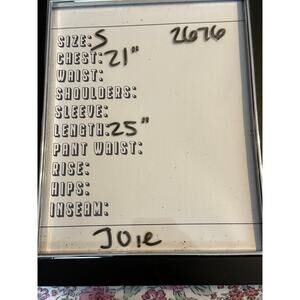 SIZE: S 2676
CHEST: 21"
WAIST:
SHOULDERS:
SLEEVE:
LENGTH: 25"
PANT WAIST:
RISE:
HIPS:
INSEAM:
Joie